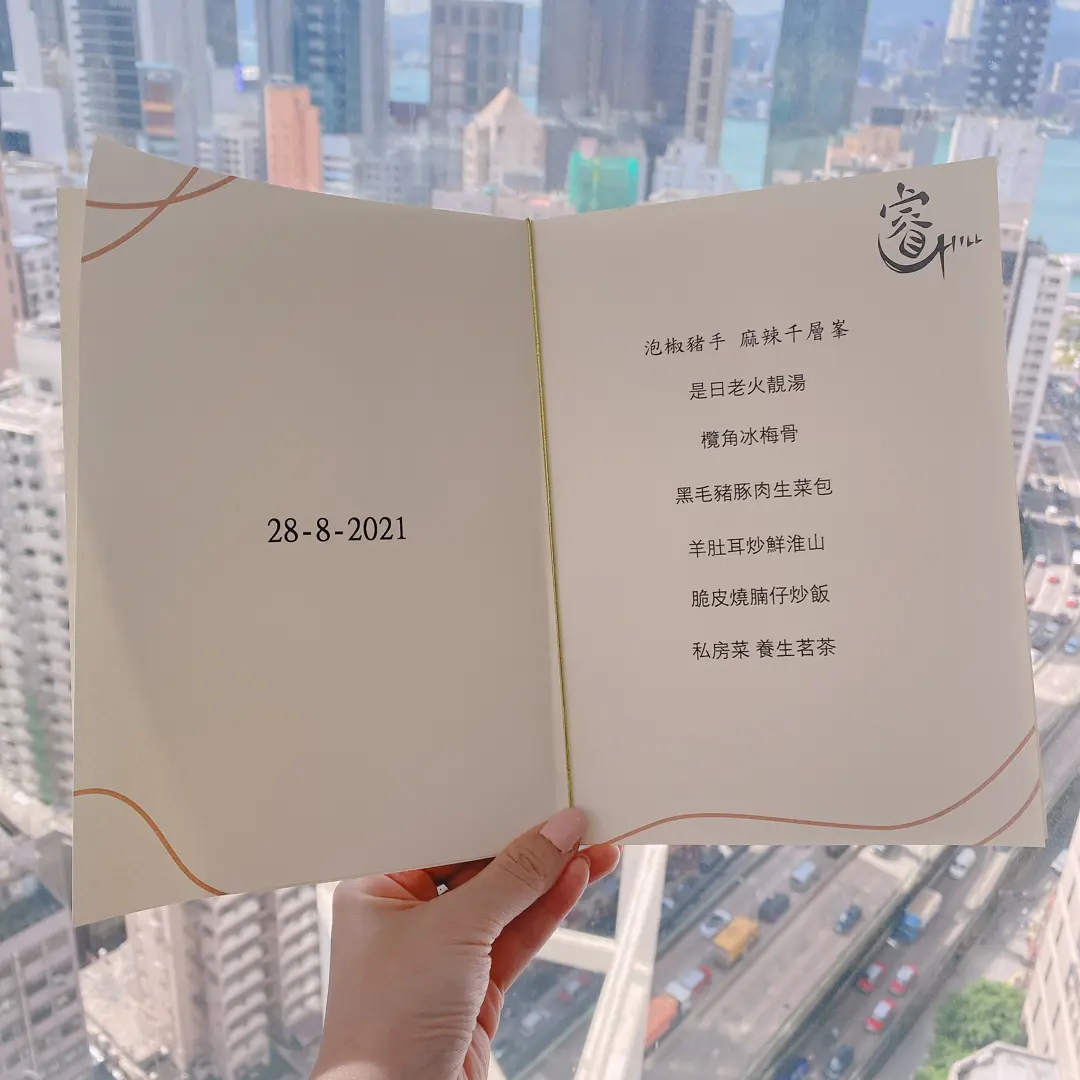 28-8-2021
睿HILL
泡椒豬手 麻辣千層峯
是日老火靚湯
欖角冰梅骨
黑毛豬豚肉生菜包
羊肚耳炒鮮淮山
脆皮燒腩仔炒飯
私房菜 養生茗茶